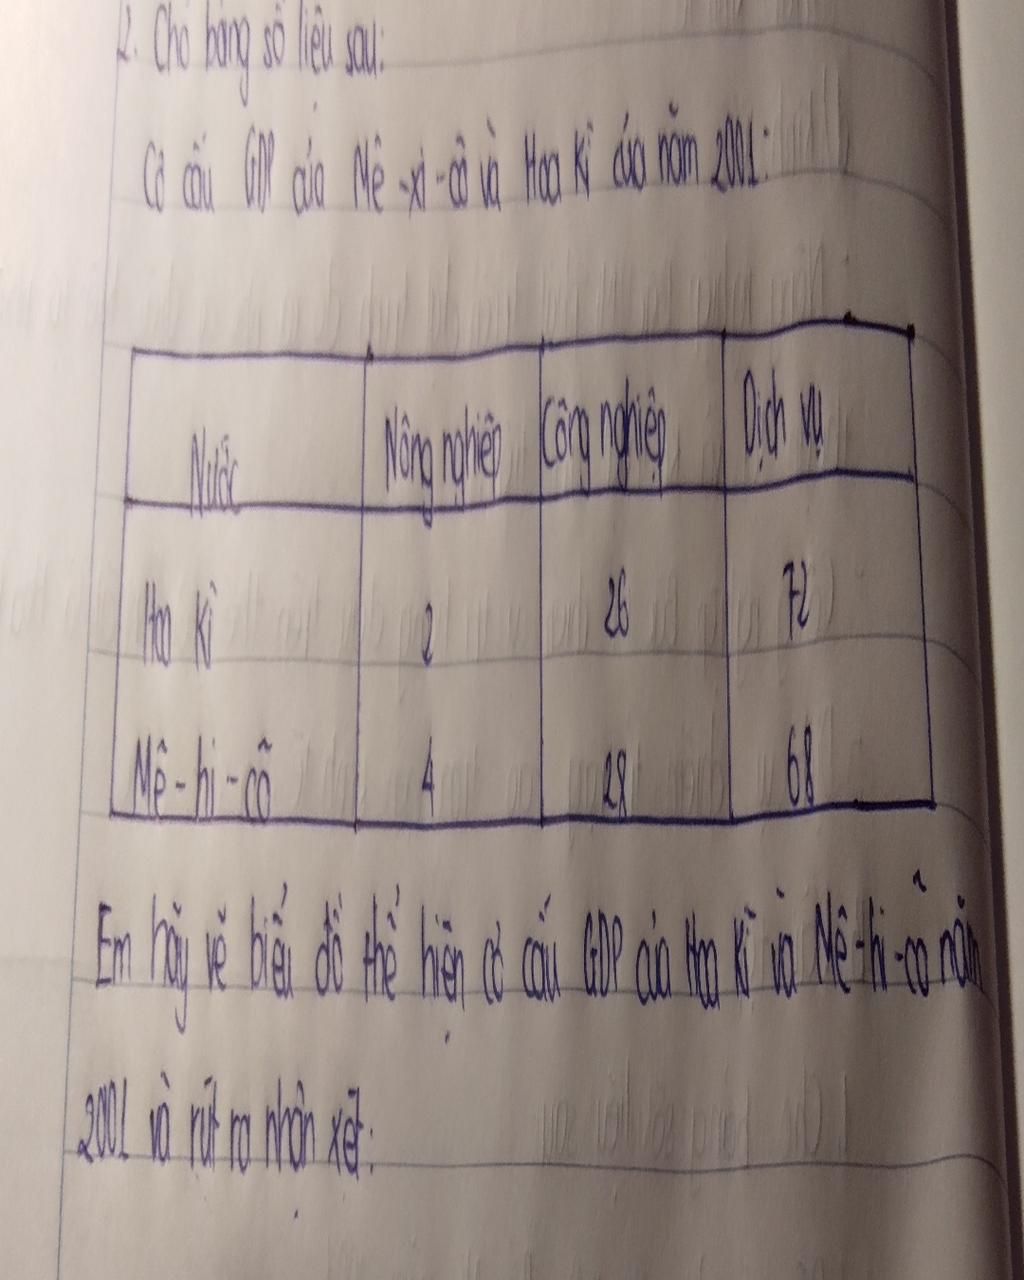 2. Cho bảng số liệu sau:
Cơ cấu GDP của Mê-xi-cô và Hoa Kì của năm 2001:
Nước Nông nghiệp Công nghiệp Dịch vụ
Hoa Kì 2 26 72
Mê-hi-cô 4 28 68
Em hãy vẽ biểu đồ thể hiện cơ cấu GDP của Hoa Kì và Mê-hi-cô năm
2001 và rút ra nhận xét: